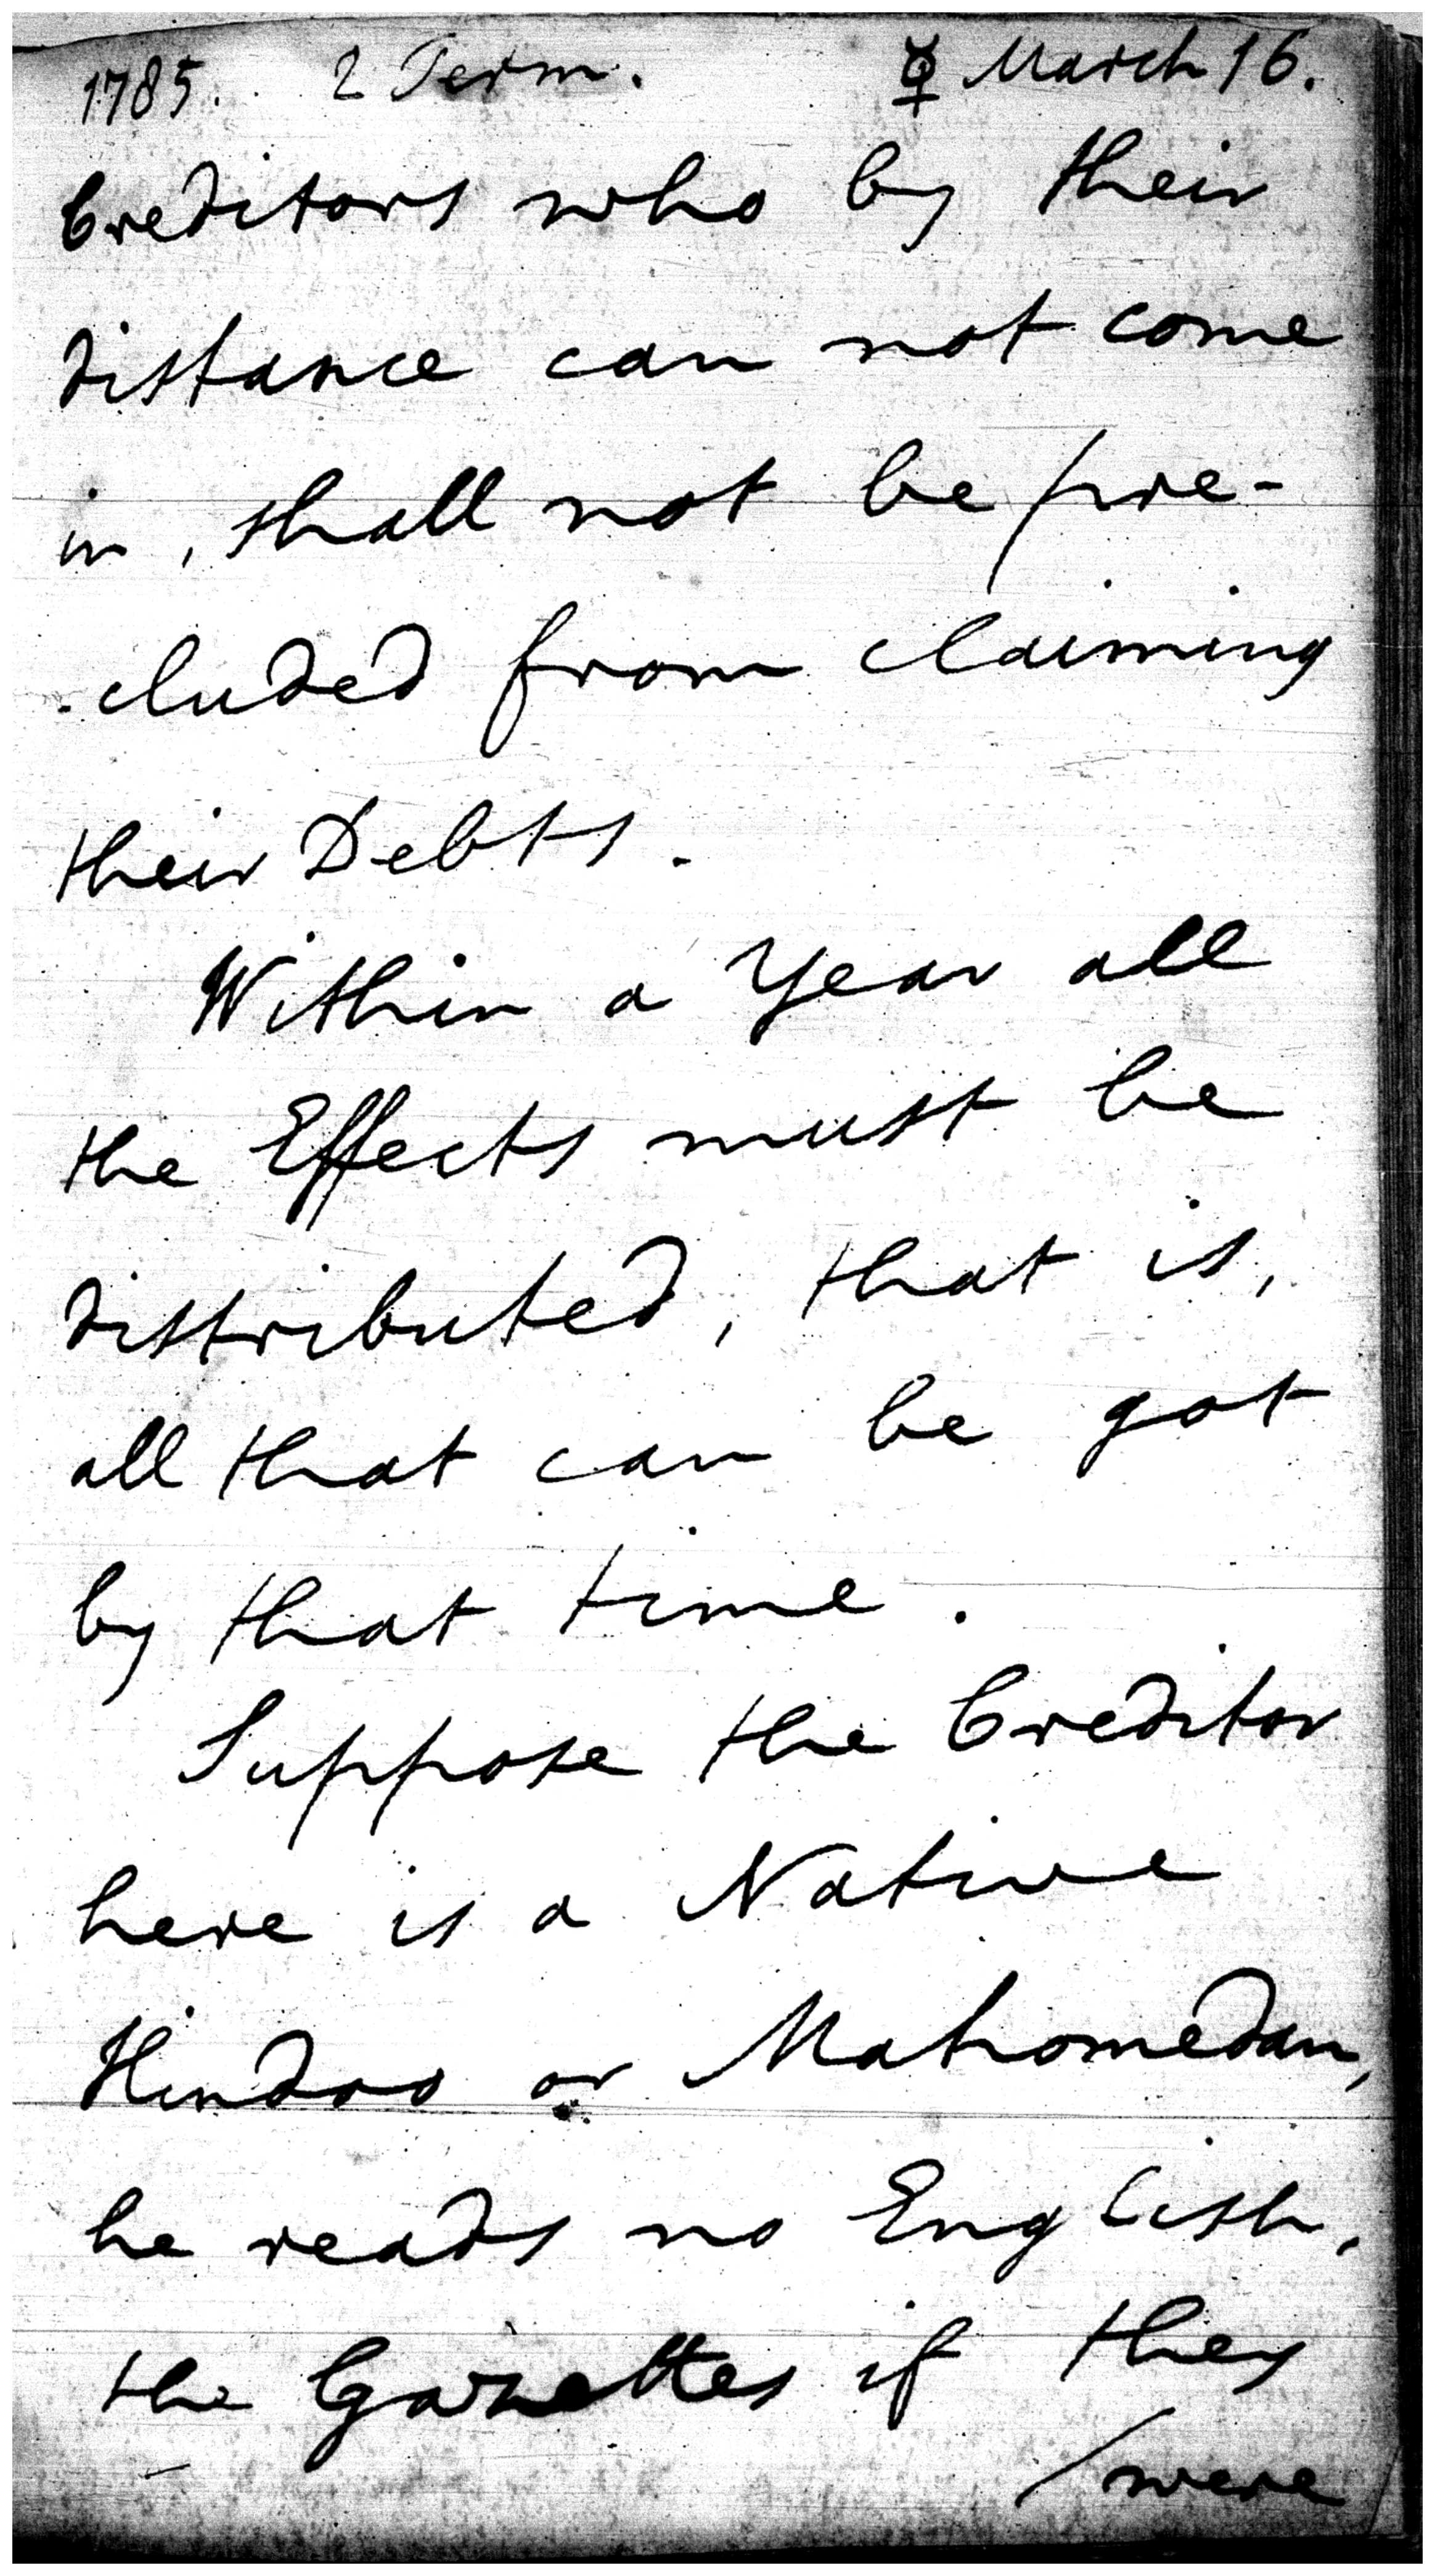 1785. 2 Term. ☿ March 16.
Creditors who by their
distance can not come
in, shall not be pre-
-cluded from claiming
their Debts.
Within a Year all
the Effects must be
distributed, that is,
all that can be got
by that time.
Suppose the Creditor
here is a Native
Hindoo or Mahomedan,
he reads no English,
the Gazettes if they
/were